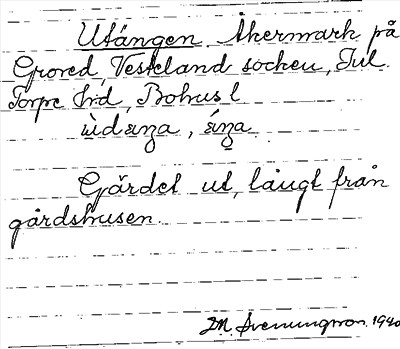 Utängen Åkermark på
Grored, Vesteland socken, Tul
Torpe hrd, Bohusl
ùdæŋa, ǽŋa
Gärdet ut, långt från
gårdshusen.
J.M. Svenungsson. 1940